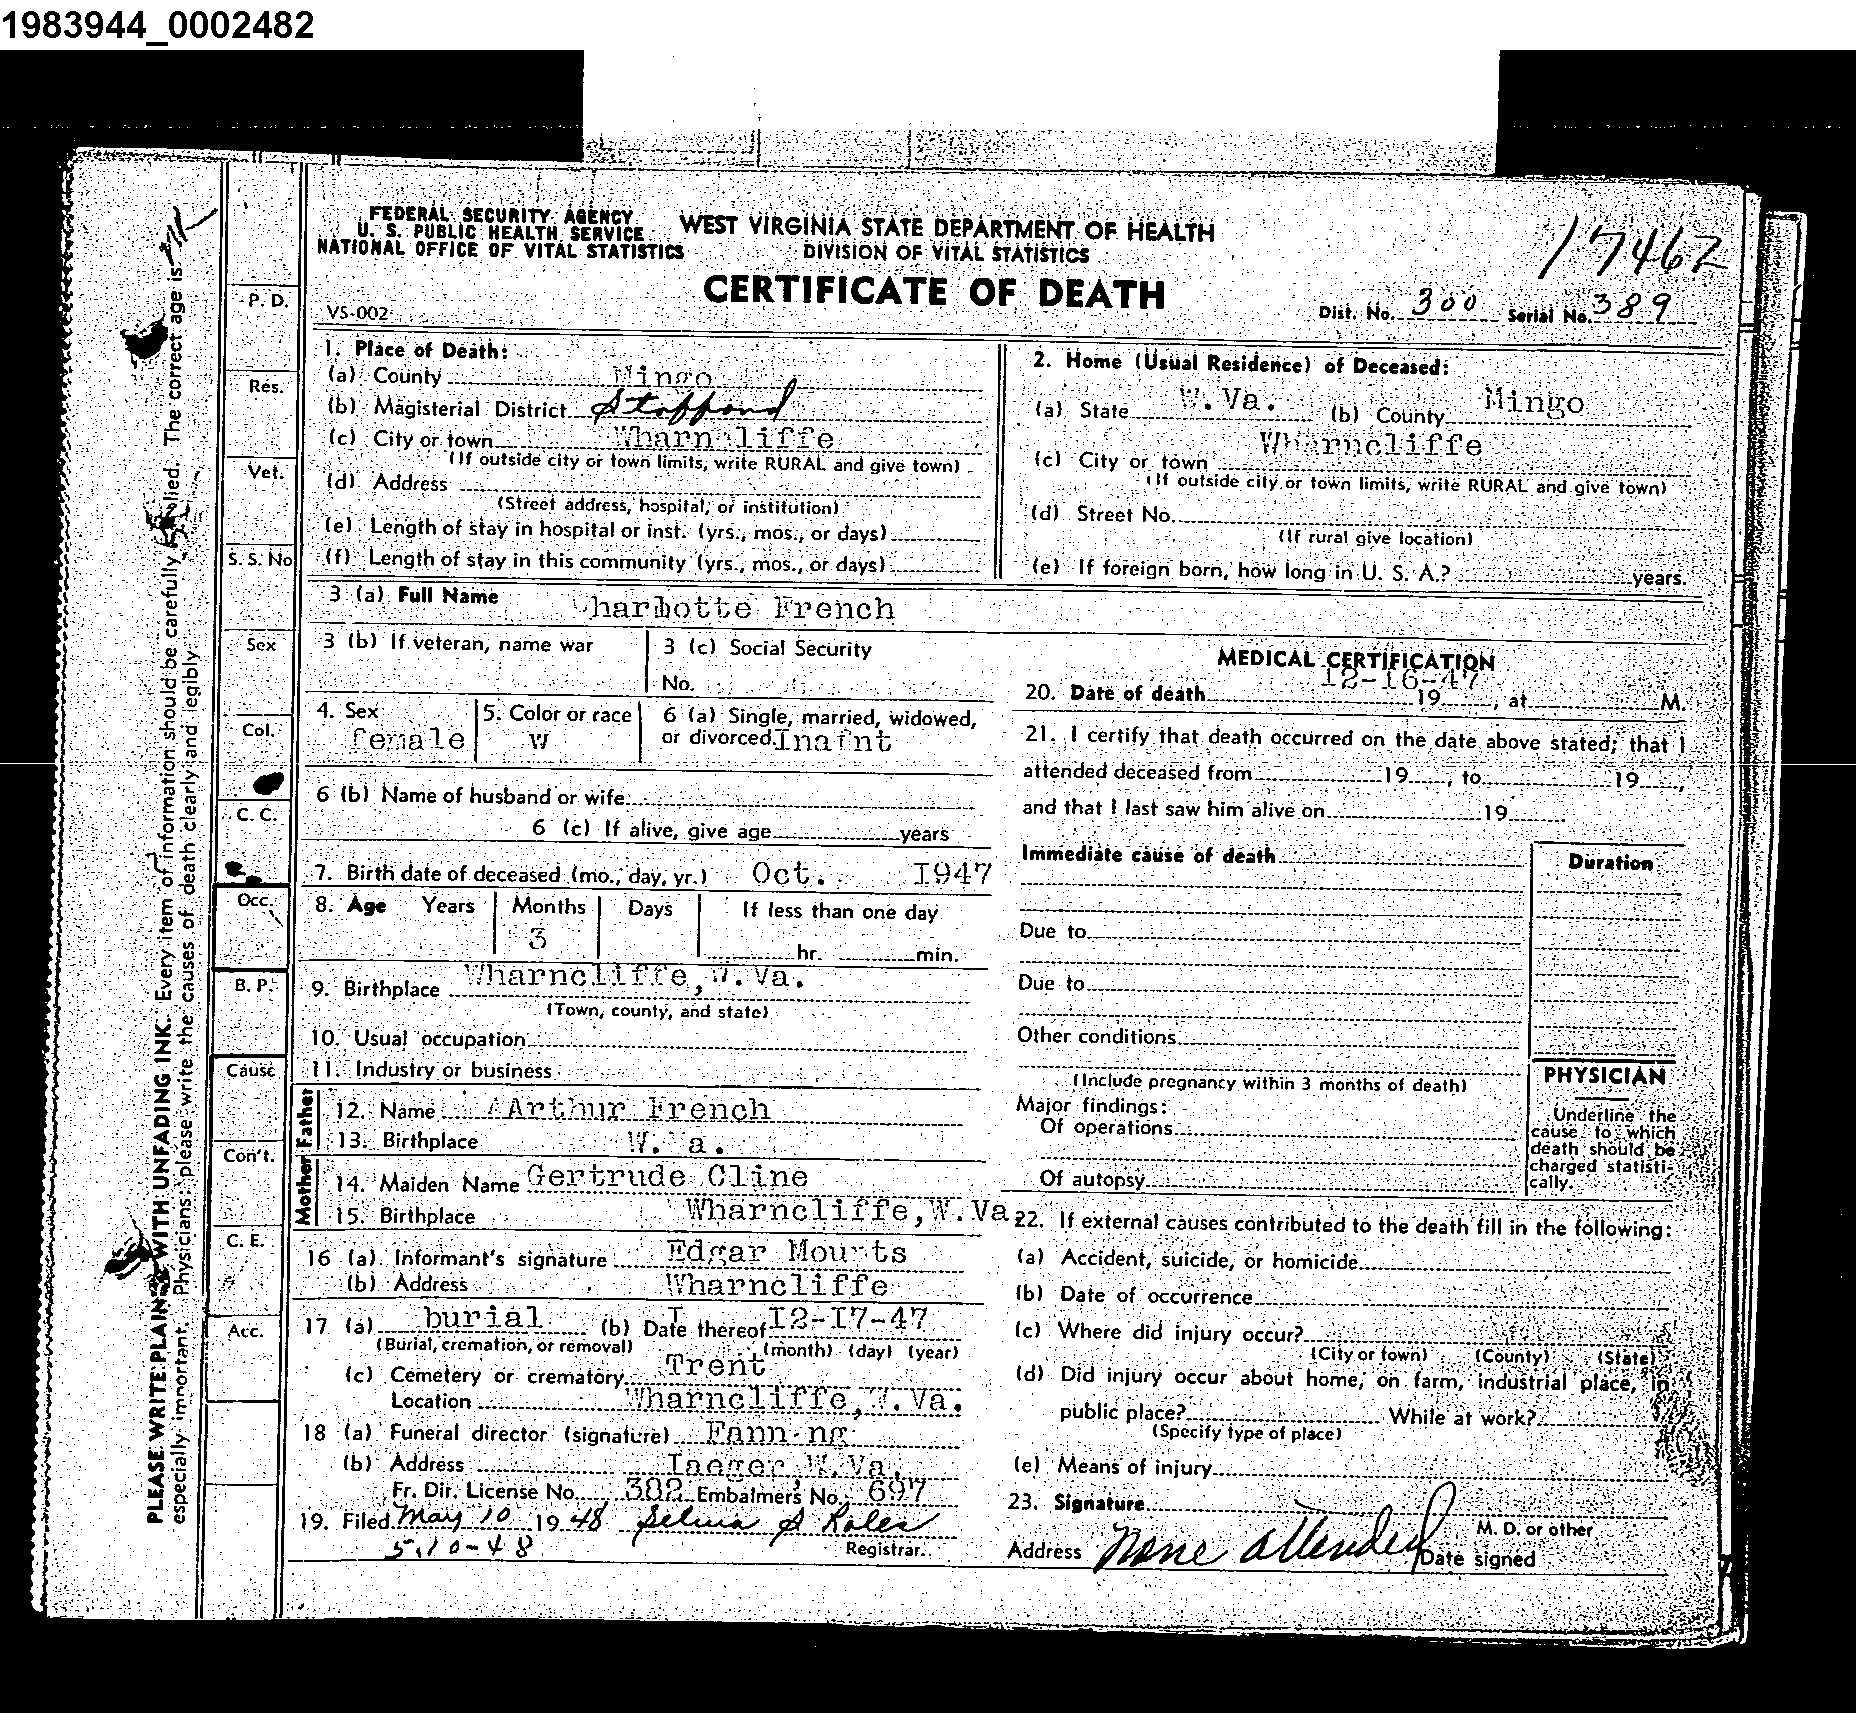 1983944_0002482
FEDERAL SECURITY AGENCY
U. S. PUBLIC HEALTH SERVICE
NATIONAL OFFICE OF VITAL STATISTICS
WEST VIRGINIA STATE DEPARTMENT OF HEALTH
DIVISION OF VITAL STATISTICS
CERTIFICATE OF DEATH
17462
VS-002
Dist. No. 300 Serial No. 389
1. Place of Death:
(a) County Mingo
(b) Magisterial District Stafford
(c) City or town Wharncliffe
(If outside city or town limits, write RURAL and give town)
(d) Address
(Street address, hospital, or institution)
(e) Length of stay in hospital or inst. (yrs., mos., or days)
(f) Length of stay in this community (yrs., mos., or days)
2. Home (Usual Residence) of Deceased:
(a) State W.Va. (b) County Mingo
(c) City or town Wharncliffe
(If outside city or town limits, write RURAL and give town)
(d) Street No.
(If rural give location)
(e) If foreign born, how long in U. S. A.? years.
3 (a) Full Name Charlotte French
3 (b) If veteran, name war
3 (c) Social Security
No.
4. Sex female
5. Color or race W
6 (a) Single, married, widowed,
or divorced Inafnt
6 (b) Name of husband or wife
6 (c) If alive, give age years
7. Birth date of deceased (mo., day, yr.) Oct. I947
8. Age Years Months Days If less than one day
3 hr. min.
9. Birthplace Wharncliffe,W.Va.
(Town, county, and state)
10. Usual occupation
11. Industry or business
Father
12. Name Arthur French
13. Birthplace W. a.
Mother
14. Maiden Name Gertrude Cline
15. Birthplace Wharncliffe,W.Va
16 (a) Informant's signature Edgar Mounts
(b) Address Wharncliffe
17 (a) burial (b) Date thereof I2-I7-47
(Burial, cremation, or removal) (month) (day) (year)
(c) Cemetery or crematory Trent
Location Wharncliffe,W.Va.
18 (a) Funeral director (signature) Fanning
(b) Address Iaeger W.Va.
Fr. Dir. License No. 382 Embalmer's No. 697
19. Filed May 10 1948 Selma S Roles
5.10-48 Registrar.
MEDICAL CERTIFICATION
20. Date of death I2-I6-47 19 , at M.
21. I certify that death occurred on the date above stated; that I
attended deceased from 19 , to 19 ,
and that I last saw him alive on 19
Immediate cause of death
Duration
Due to
Due to
Other conditions
(Include pregnancy within 3 months of death)
Major findings:
Of operations
Of autopsy
PHYSICIAN
Underline the
cause to which
death should be
charged statisti-
cally.
22. If external causes contributed to the death fill in the following:
(a) Accident, suicide, or homicide
(b) Date of occurrence
(c) Where did injury occur?
(City or town) (County) (State)
(d) Did injury occur about home, on farm, industrial place, in
public place? While at work?
(Specify type of place)
(e) Means of injury
23. Signature
M. D. or other
Address None attended Date signed
P. D.
Res.
Vet.
S. S. No
Sex
Col.
C. C.
Occ.
B. P.
Cause
Con't.
C. E.
Acc.
PLEASE WRITE PLAINLY WITH UNFADING INK. Every item of information should be carefully supplied. The correct age is
especially important. Physicians please write the causes of death clearly and legibly.